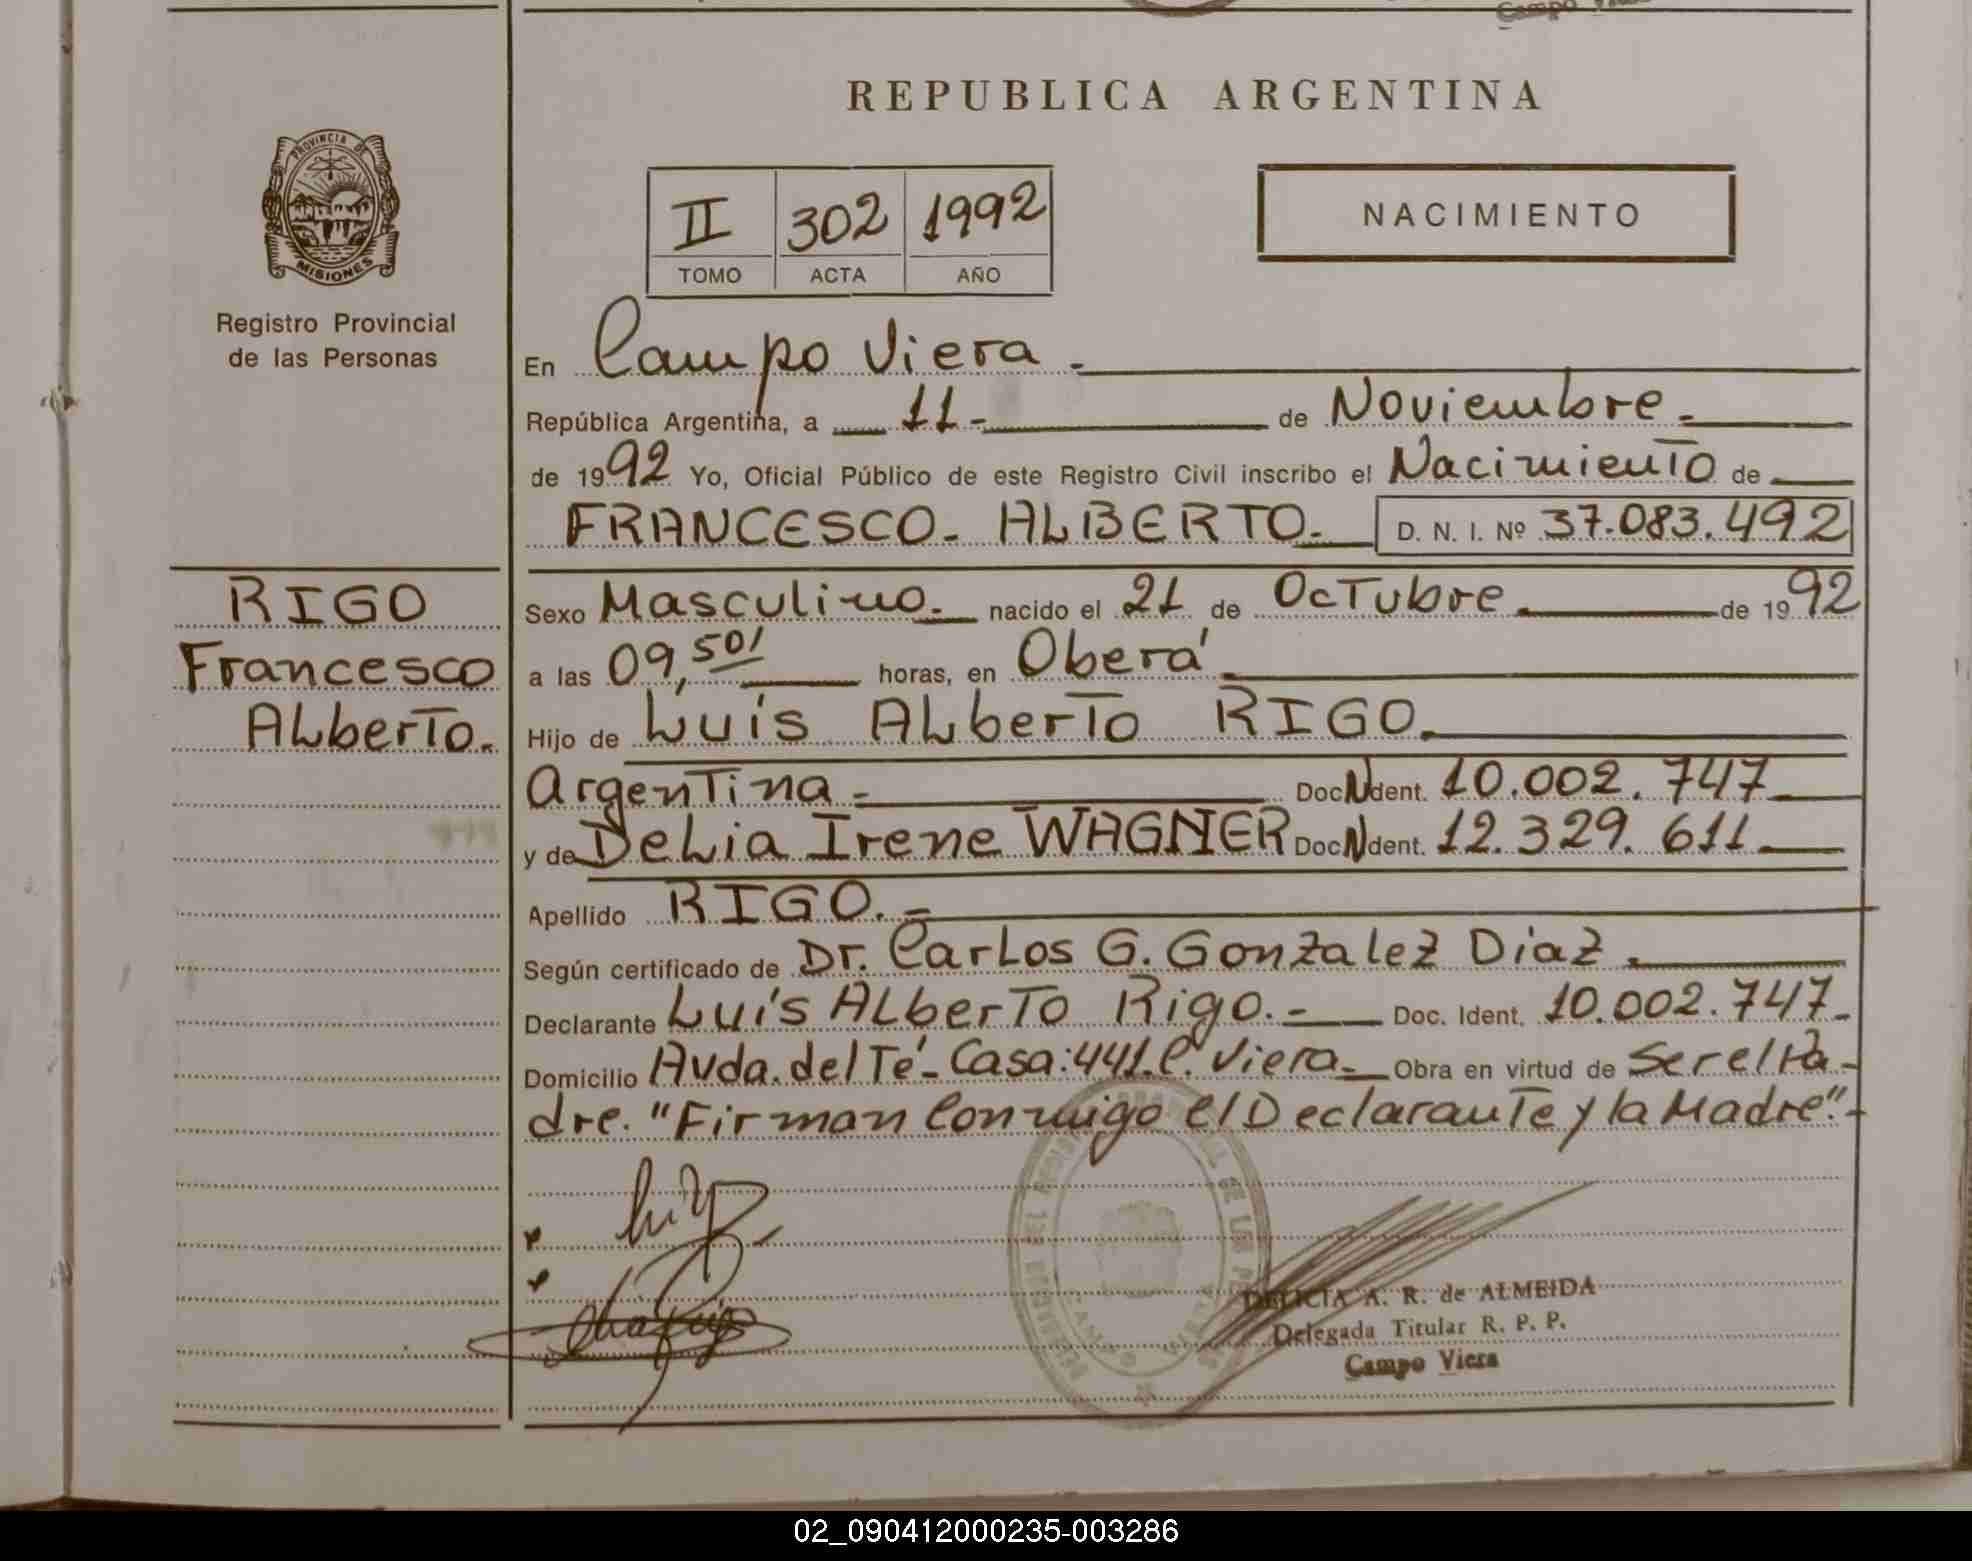 Campo Viera
REPUBLICA ARGENTINA
PROVINCIA DE
MISIONES
Registro Provincial
de las Personas
II 302 1992
TOMO ACTA AÑO
NACIMIENTO
En Campo Viera -
República Argentina, a 11- de Noviembre.
de 1992 Yo, Oficial Público de este Registro Civil inscribo el Nacimiento de
FRANCESCO. ALBERTO. D. N. I. Nº 37.083.492
RIGO
Francesco
Alberto.
Sexo Masculino. nacido el 21 de Octubre. de 1992
a las 09,50' horas, en Oberá
Hijo de Luis Alberto RIGO.
Argentina - Doc N dent. 10.002.747
y de Delia Irene WAGNER Doc N dent. 12.329.611
Apellido RIGO. -
Según certificado de Dr. Carlos G. Gonzalez Diaz.
Declarante Luis Alberto Rigo. - Doc. Ident. 10.002.747-
Domicilio Avda. del Té - Casa: 441. C. Viera. Obra en virtud de Ser el Pa-
dre. "Firman Conmigo el Declarante y la Madre". -
DELICIA A. R. de ALMEIDA
Delegada Titular R. P. P.
Campo Viera
02_090412000235-003286